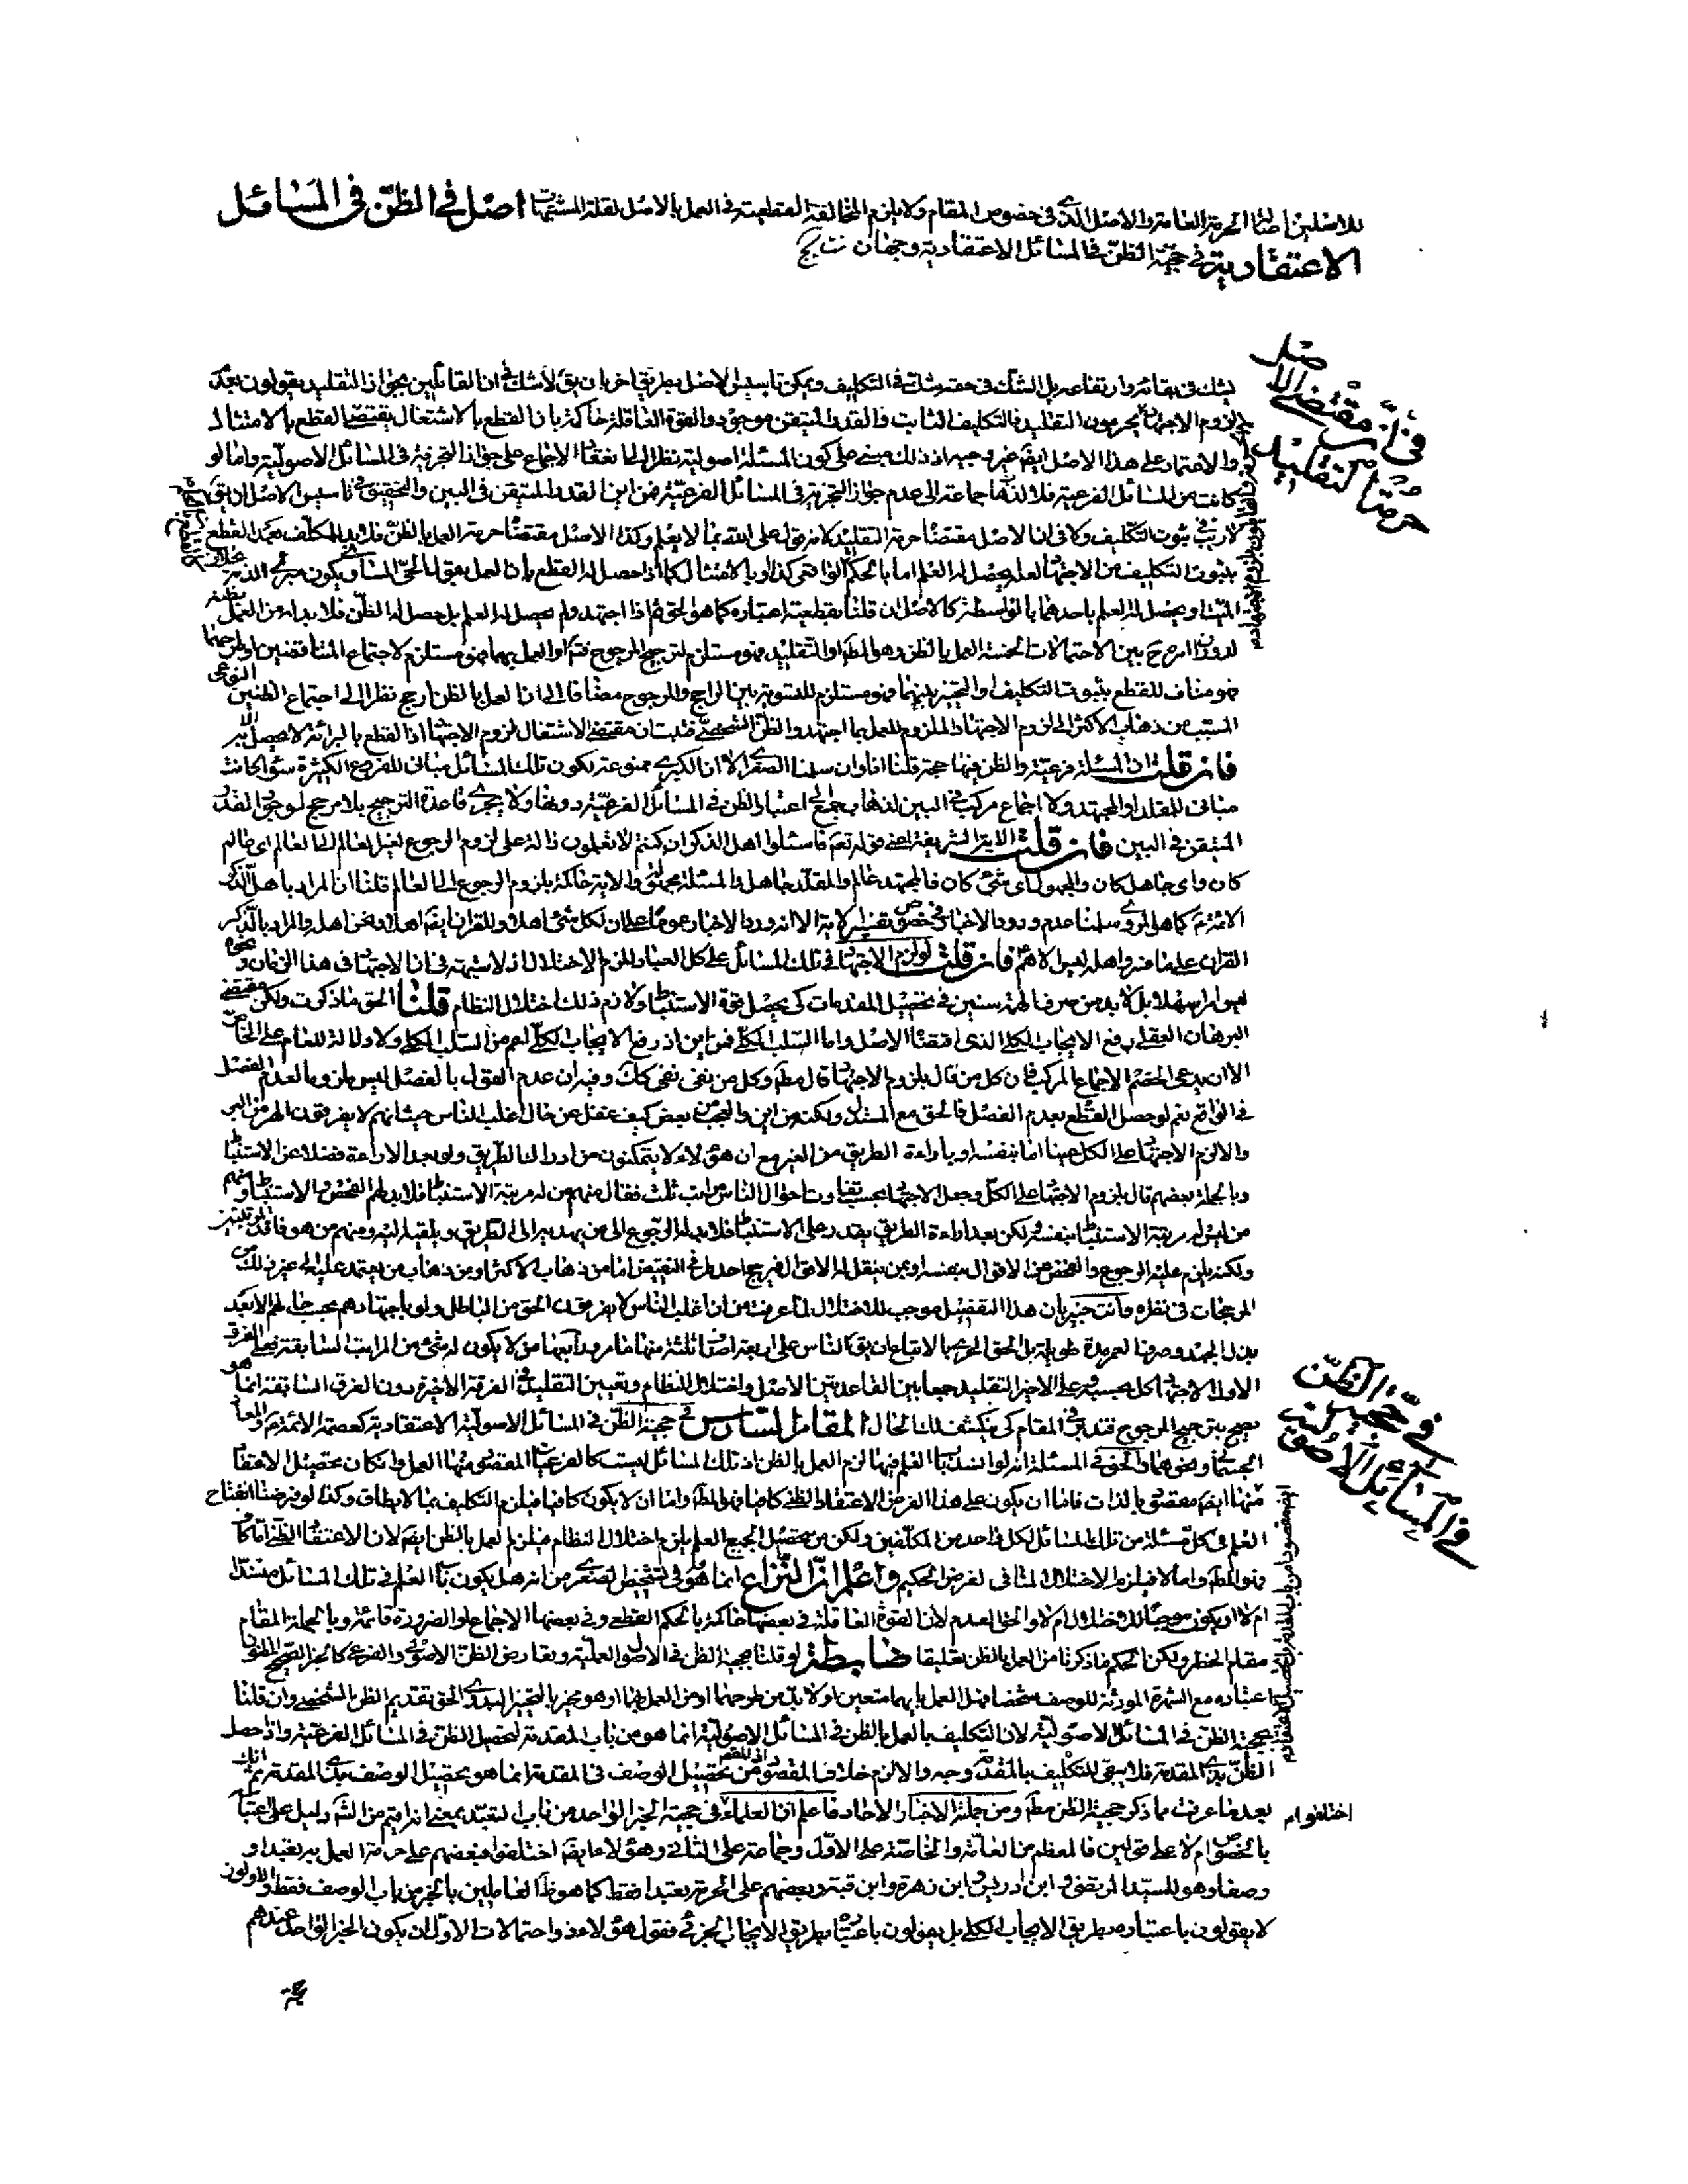 للاصلين اصالة الحرمة العامة والاصل الذى فى خصوص المقام ولا يلزم المخالفة القطعية فى العمل بالاصل لقلة المشتبهات اصل فى الظن فى المسائل
الاعتقادية فى حجية الظن فى المسائل الاعتقادية وجهان نتايج
فى ان مقتضى الاصل
حرمة التقليد
يشك فى بقائه وارتفاعه بل الشك فى حقه شك فى التكليف ويمكن تاسيس الاصل بطريق اخر بان يق لا شك فى ان القائلين بجواز التقليد يقولون بعدم
لزوم الاجتهاد يحرمون التقليد فالتكليف الثابت والقدر المتيقن موجود والقوة العاقلة حاكمة بان القطع بالاشتغال يقتضى القطع بالامتثال
والاعتماد على هذا الاصل ايضا غير وجيه اذ ذلك مبنى على كون المسئلة اصولية نظرا الى انعقاد الاجماع على جواز التجزية فى المسائل الاصولية واما لو
كانت من المسائل الفرعية فلا لذهاب جماعة الى عدم جواز التجزية فى المسائل الفرعية فمن اين القدر المتيقن فى البين والتحقيق فى تاسيس الاصل ان يق
لا ريب فى ثبوت التكليف ولا فى ان الاصل مقتضاه حرمة التقليد لانه قول على الله بما لا يعلم وكذا الاصل مقتضاه حرمة العمل بالظن فلا بد للمكلف بعد القطع
بثبوت التكليف من الاجتهاد لعله يحصل له العلم اما بالحكم الواقعى كذا او بالامتثال كما اذا حصل له القطع بان العمل بقول الحى المساوى يكون مبرئ الذمة
الميت او يحصل له العلم باحدهما بالواسطة كالاصل ان قلنا بقطعية اعتباره كما هو الحق ثم اذا اجتهد ولم يحصل له العلم بل حصل له الظن فلا بد له من العمل بظنه
لدوران امره ح بين الاحتمالات الخمسة العمل بالظن وهو المط او التقليد فهو مستلزم لترجيح المرجوح فتم او العمل بهما فهو مستلزم لاجتماع المتناقضين او طرحهما
فهو مناف للقطع بثبوت التكليف او التخيير بينهما فهو مستلزم للتسوية بين الراجح والمرجوح مضافا الى ان العمل بالظن ارجح نظرا الى اجتماع الظنين النوعى
المسبب من ذهاب الاكثر الى لزوم الاجتهاد الملزوم للعمل بما اجتهد والظن الشخصى فثبت ان مقتضى الاشتغال لزوم الاجتهاد اذ القطع بالبرائة لا يحصل الا به
فان قلت ان المسئلة فرعية والظن فيها حجة قلنا اولا وان سلمنا الصغرى الا ان الكبرى ممنوعة لكون تلك المسائل مبانى للفروع الكثيرة سواء كانت
مبانى للمقلد او المجتهد ولا اجماع مركب فى البين لذهاب جمع الى اعتبار الظن فى المسائل الفرعية دونها ولا يجرى قاعدة الترجيح بلا مرجح لوجود القدر
المتيقن فى البين فان قلت الاية الشريفة اعنى قوله تعم فاسئلوا اهل الذكر ان كنتم لا تعلمون دالة على لزوم الرجوع لغير العالم الى العالم اى عالم
كان واى جاهل كان والمجهول اى شئ كان فالمجتهد عالم والمقلد جاهل والمسئلة مجهولة والاية حاكمة بلزوم الرجوع الى العالم قلنا ان المراد باهل الذكر
الائمة ع كما هو المروى سلمنا عدم ورود الاخبار فى خصوص تفسير الاية الا انه ورد الاخبار عموما على ان لكل شئ اهلا وللقران ايضا اهلا ونحن اهله والمراد بالذكر
القران على ما فسر واهله ليس الا هم فان قلت لو لزم الاجتهاد فى تلك المسائل على كل العباد لزم الاختلال اذ لا شبهة فى ان الاجتهاد فى هذا الزمان ونحوه
ليس امرا سهلا بل لا بد من صرف المرء سنين فى تحصيل المقدمات كى يحصل قوة الاستنباط ولازم ذلك اختلال النظام قلنا الحق ما ذكرت ولكن مقتضى
البرهان العقلى رفع الايجاب الكلى الذى اقتضاه الاصل واما السلب الكلى فمن اين اذ رفع الايجاب الكلى اعم من السلب الكلى ولا دلالة للعام على الخاص
الا ان يدعى الخصم الاجماع المركب فان كل من قال بلزوم الاجتهاد قال مط وكل من نفى نفى كك وفيه ان عدم القول بالفصل ليس ملزوما لعدم الفصل
فى الواقع نعم لو حصل القطع بعدم الفصل فالحق مع المستدل ولكنه من اين والعجب من بعض كيف غفل عن حال اغلب الناس حيث انهم لا يفرقون الهر من البر
والا لزم الاجتهاد على الكل عينا اما بنفسه او باراءة الطريق من الغير مع ان هؤلاء لا يتمكنون من ادراك الطريق ولو بعد الاراءة فضلا عن الاستنباط
وبالجملة بعضهم قال بلزوم الاجتهاد على الكل وجعل الاجتهاد بحسب تفاوت احوال الناس مراتب ثلث فقال منهم من له مرتبة الاستنباط فلا بد لهم الفحص والاستنباط ومنهم
من ليس له مرتبة الاستنباط بنفسه لكن بعد اراءة الطريق يقدر على الاستنباط فلا بد له الرجوع الى من يهديه الى الطريق ويلقيه اليه ومنهم من هو فاقد المرتبتين
ولكنه يلزم عليه الرجوع والفحص عن الاقوال بنفسه او بمن ينقل له الاقوال فيرجح احد طرفى النقيض اما من ذهاب الاكثر او من ذهاب من يعتمد عليه الى غير ذلك من
المرجحات فى نظره وانت خبير بان هذا التفصيل موجب للاختلال لما عرفت من ان اغلب الناس لا يفرقون الحق من الباطل ولو باجتهادهم بحسب حالهم الا بعد
بذل الجهد وصرف العمر مدة طويلة بل الحق الحرى بالاتباع ان يق الناس على اربعة اصناف ثلثة منها ما مر ورابعها من لا يكون له شئ من المراتب السابقة فعلى الفرق
الاول الاجتهاد كل بحسبه وعلى الاخير التقليد جمعا بين القاعدتين الاصل واختلال النظام وتعيين التقليد فى الفرقة الاخيرة دون الفرق السابقة انما هو
بقبح ترجيح المرجوح فتدبر فى المقام كى ينكشف لك الحال المقام السادس فى حجية الظن فى المسائل الاصولية الاعتقادية كعصمة الائمة ع والمعاد
فى حجية الظن
فى المسائل الاصولية
الجسمانى ونحوهما والحق فى المسئلة انه لو انسد باب العلم فيها لزم العمل بالظن اذ تلك المسائل ليست كالفرعيات المقصود منها العمل وان كان تحصيل الاعتقاد
منها ايضا مقصود بالذات فاما ان يكون على هذا الفرض الاعتقاد الظنى كافيا فهو المط واما ان لا يكون كافيا فيلزم التكليف بما لا يطاق وكذا لو فرضنا انفتاح
العلم فى كل مسئلة من تلك المسائل لكل واحد من المكلفين ولكن من تحصيل الجميع العلم يلزم اختلال النظام فيلزم العمل بالظن ايضا لان الاعتقاد الظنى اما كاف
فهو المط واما لا فيلزم الاختلال المنافى لغرض الحكيم واعلم ان النزاع انما هو فى تشخيص الصغرى من انه هل يكون باب العلم فى تلك المسائل منسدا
ام لا او يكون موجبا للاختلال ام لا والحق العدم لان القوة العاقلة فى بعضها حاكمة بالحكم القطعى وفى بعضها الاجماع والضرورة قائمة وبالجملة المقام
مقام الخطر ولكن الحكم ما ذكرنا من العمل بالظن تعليقا ضابطة لو قلنا بحجية الظن فى الاصول العملية وتعارض الظن الاصولى والفرعى كالخبر الصحيح المظنون
اعتباره مع الشهرة المورثة للوصف شخصا فهل العمل بايهما متعين او لا بد من طرحهما او من العمل بهما او هو مخير بالتخيير البدوى الحق تقديم الظن الشخصى وان قلنا
بحجية الظن فى المسائل الاصولية لان التكليف بالعمل بالظن فى المسائل الاصولية انما هو من باب المقدمة لتحصيل الظن فى المسائل الفرعية واذا حصل
الظن بذى المقدمة فلا يبقى للتكليف بالمقدمة وجه والا لزم خلاف المقصود من تحصيل الوصف فى المقدمة انما هو تحصيل الوصف بذى المقدمة ثم انك
بعد ما عرفت مما ذكر حجية الظن مط ومن جملته الاخبار الاحاد فاعلم ان العلماء فى حجية الخبر الواحد من باب التعبد بمعنى انه اقيم من الشرع دليل على اعتباره
اختلفوا م
بالخصوص ام لا على قولين فالمعظم من العامة والخاصة على الاول وجماعة على الثانى وهؤلاء ايضا اختلفوا فبعضهم على حرمة العمل به تعبدا و
وصفا وهو للسيد المرتضى وابن ادريس وابن زهرة وابن قبة وبعضهم على الحرمة تعبدا فقط كما هو ظ العاملين بالخبر من باب الوصف فقط والاولون
لا يقولون باعتباره بطريق الايجاب الكلى بل يقولون باعتباره بطريق الايجاب الجزئى فنقول هؤلاء ذو احتمالات الاول ان يكون الخبر الواحد عندهم